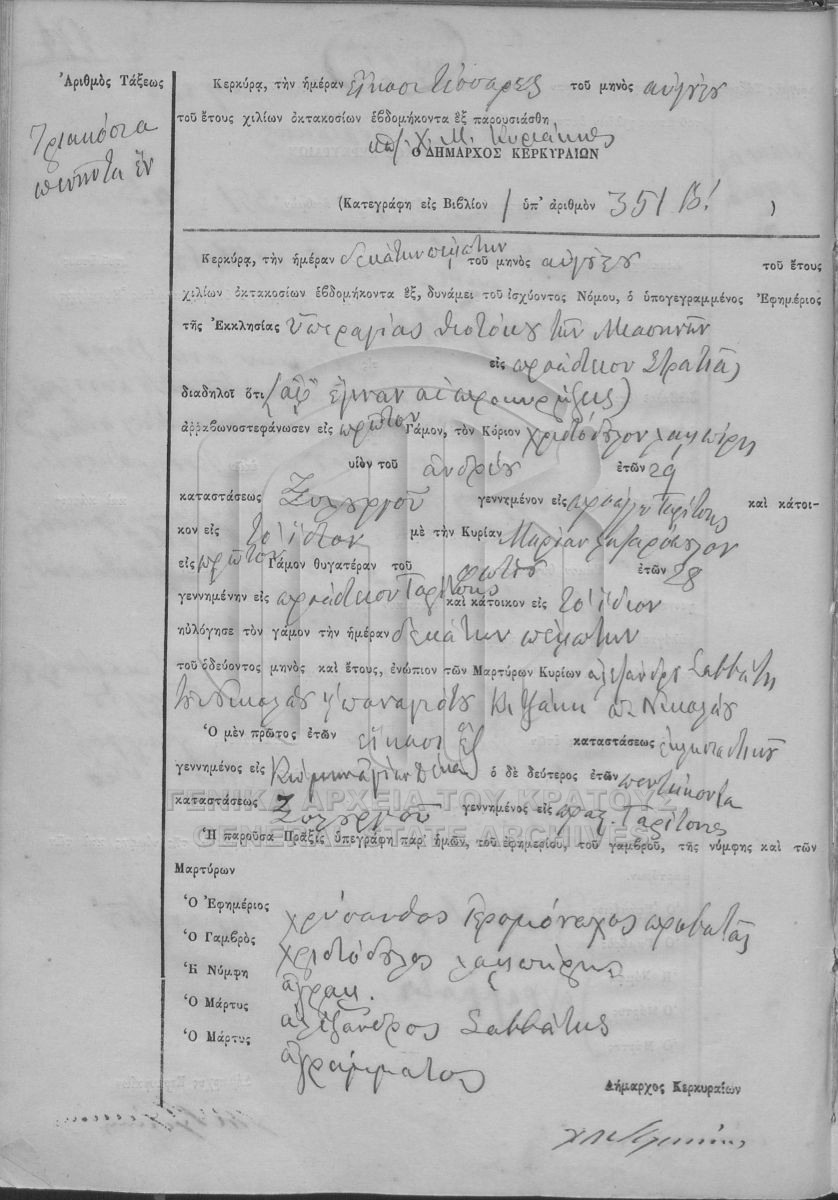 Ἀριθμὸς Τάξεως
Τριακόσια
πενῆντα ἓν
Κερκύρᾳ, τὴν ἡμέραν εἴκοσι τέσσαρες τοῦ μηνὸς αὐγούστου
τοῦ ἔτους χιλίων ὀκτακοσίων ἑβδομήκοντα ἓξ παρουσιάσθη
Ὁ ΔΗΜΑΡΧΟΣ ΚΕΡΚΥΡΑΙΩΝ
(Κατεγράφη εἰς Βιβλίον 1 ὑπ' ἀριθμὸν 351 β! )
Κερκύρᾳ, τὴν ἡμέραν δεκάτην πέμπτην τοῦ μηνὸς αὐγούστου τοῦ ἔτους
χιλίων ὀκτακοσίων ἑβδομήκοντα ἓξ, δυνάμει τοῦ ἰσχύοντος Νόμου, ὁ ὑπογεγραμμένος Ἐφημέριος
τῆς Ἐκκλησίας Ὑπεραγίας Θεοτόκου τῶν
εἰς προάστειον Στρατιᾶς
διαδηλοῖ ὅτι (ἀφ' ἔγιναν αἱ προκηρύξεις)
ἀρραβωνοστεφάνωσεν εἰς πρῶτον Γάμον, τὸν Κύριον Χριστόδουλον
υἱὸν τοῦ ἀνδρέου ἐτῶν 29
καταστάσεως Ξυλουργοῦ γεννημένον εἰς Γαρίτσης καὶ κάτοι-
κον εἰς τὸ ἴδιον μὲ τὴν Κυρίαν Μαρίαν
εἰς πρῶτον Γάμον θυγατέραν τοῦ φώτιου ἐτῶν 28
γεννημένην εἰς προάστειον Γαρίτσης καὶ κάτοικον εἰς τὸ ἴδιον
ηὐλόγησε τὸν γάμον τὴν ἡμέραν δεκάτην πέμπτην
τοῦ ὁδεύοντος μηνὸς καὶ ἔτους, ἐνώπιον τῶν Μαρτύρων Κυρίων αλεξάνδρου Σαββάτη
του Νικολάου παναγιότου Νικολάου
Ὁ μὲν πρῶτος ἐτῶν εἴκοσι ἓξ καταστάσεως
γεννημένος εἰς ὁ δὲ δεύτερος ἐτῶν πεντήκοντα
καταστάσεως Ξυλουργοῦ γεννημένος εἰς προάς. Γαρίτσης
ΓΕΝΙΚΑ ΑΡΧΕΙΑ ΤΟΥ ΚΡΑΤΟΥΣ
GENERAL STATE ARCHIVES
Ἡ παροῦσα Πρᾶξις ὑπεγράφη παρ' ἡμῶν, τοῦ ἐφημερίου, τοῦ γαμβροῦ, τῆς νύμφης καὶ τῶν
Μαρτύρων
Ὁ Ἐφημέριος Χρύσανθος Ιερομόναχος προβατᾶς
Ὁ Γαμβρὸς Χριστόδουλος
Ἡ Νύμφη ἀγραμ.
Ὁ Μάρτυς αλέξανδρος Σαββάτης
Ὁ Μάρτυς ἀγράμματος
Δήμαρχος Κερκυραίων